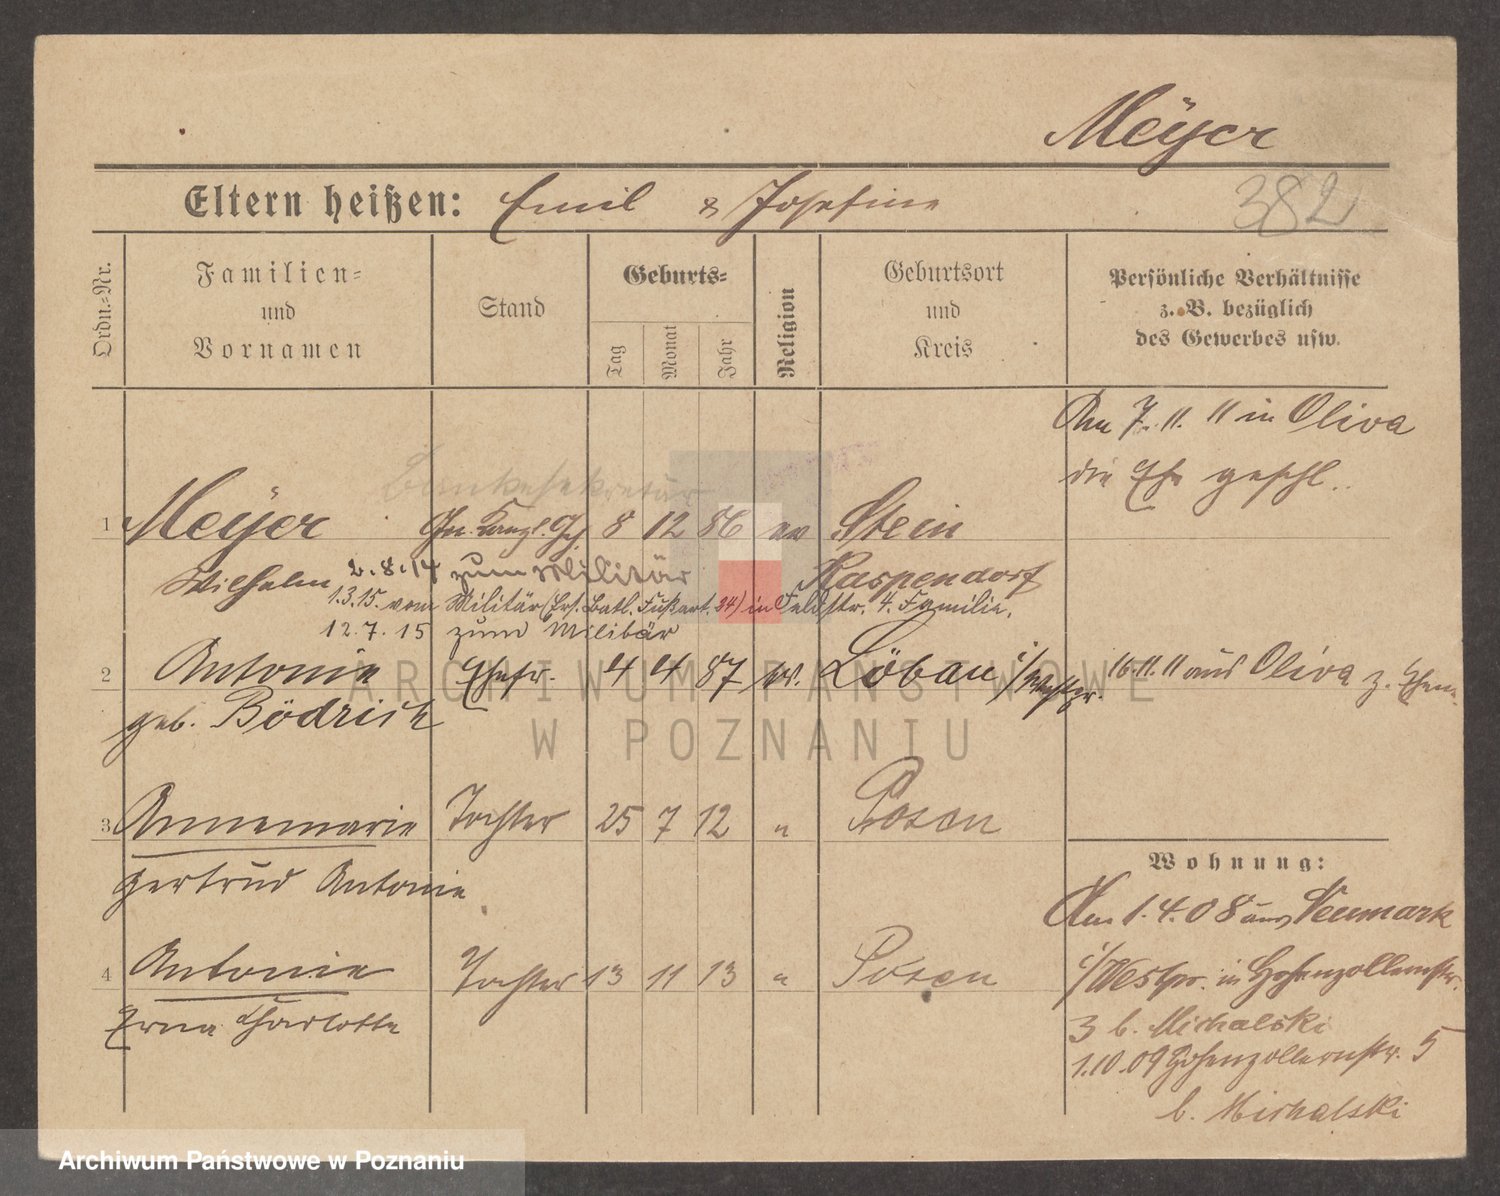 Meÿer
Eltern heißen: Emil & Josefine
382
Ordn.=Nr.
Familien=
und
Vornamen
Stand
Geburts=
Tag
Monat
Jahr
Religion
Geburtsort
und
Kreis
Persönliche Verhältnisse
z. B. bezüglich
des Gewerbes usw.
Am 7. 11. 11 in Oliva
die Ehe geschl.
Bankesekretär
1 Meÿer Kanzl. 8 12 86 ev Stein
Wilhelm 2.8.14 zum Militär Raspendorf
1.3.15. vom Militär (Ers. Batl. Fußart. 24) in Feldstr. 4. Familie.
12.7.15 zum Militär
2 Antonie Ehefr. 4 4 87 ev. Löbau i/Westpr. 16.11.11 aus Oliva z. Ehem.
geb. Bödrich
3 Annemarie Tochter 25 7 12 " Posen
Gertrud Antonie
4 Antonie Tochter 13 11 13 " Posen
Erna Charlotte
Wohnung:
Am 1.4.08 aus Neumark
i/Westpr. in Hohenzollernstr.
3 b. Michalski
1.10.09 Hohenzollernstr. 5
b. Michalski
ARCHIWUM PAŃSTWOWE
W POZNANIU
Archiwum Państwowe w Poznaniu